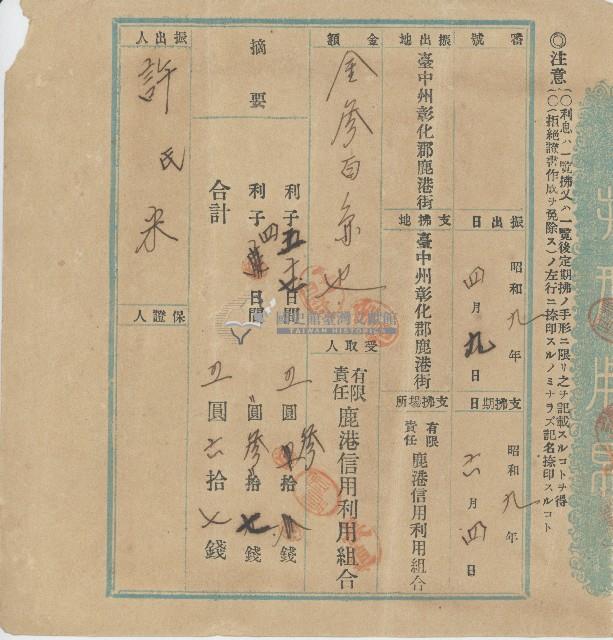 ◎注意
(一〇)利息ハ一覽拂又ハ一覽後定期拂ノ手形ニ限リ之ヲ記載スルコトヲ得
(一〇)(拒絕證書作成ヲ免除ス)ノ左行ニ捺印スルノミナラズ記名捺印スルコト
番號
振出日
昭和九年
四月九日
支拂期日
昭和九年
六月四日
振出地
臺中州彰化郡鹿港街
支拂地
臺中州彰化郡鹿港街
支拂場所
有限責任
鹿港信用利用組合
金額
金參百圓也
受取人
有限責任
鹿港信用利用組合
摘要
利子
日間
圓
拾
錢
利子
日間
圓
參拾七錢
合計
圓六拾七錢
振出人
許氏米
保證人
國史館臺灣文獻館
TAIWAN HISTORICA